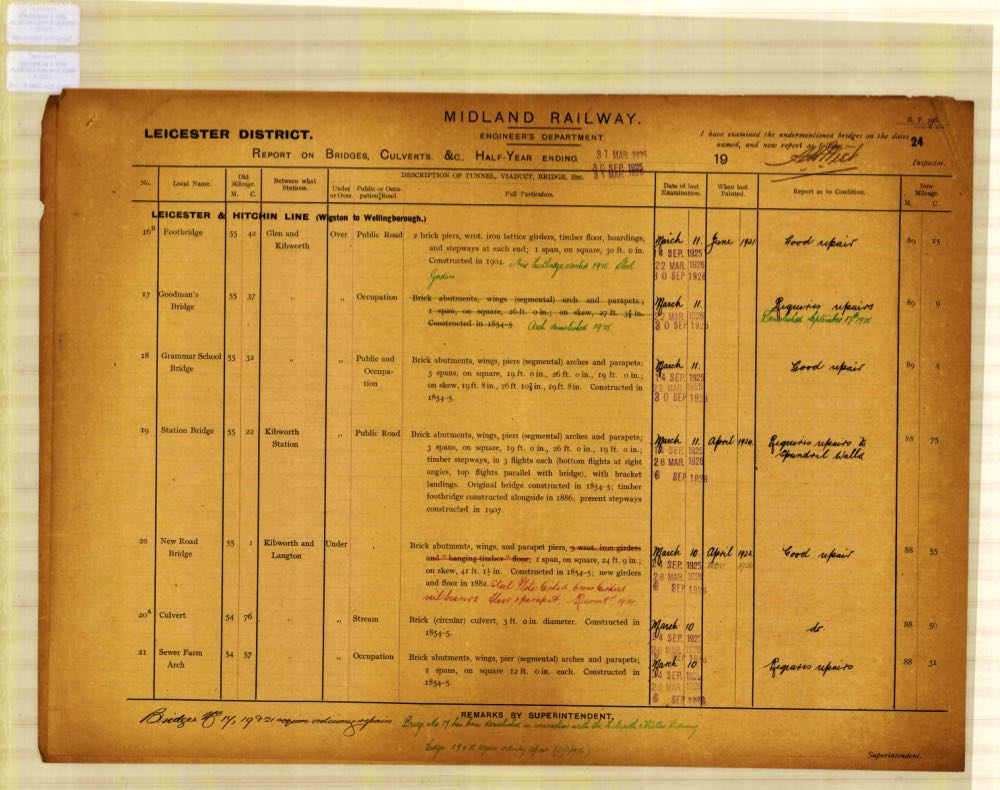 MIDLAND RAILWAY.
E. P.
LEICESTER DISTRICT.
ENGINEER'S DEPARTMENT.
I have examined the undermentioned bridges on the dates
named, and now report as follows
24
REPORT ON BRIDGES, CULVERTS, &c., HALF-YEAR ENDING
31 MAR 1925
30 SEP. 1925
31 MAR 1926
19
Inspector.
No. Local Name. Old Mileage. M. C. Between what Stations. Under or Over. Public or Occupation Road. DESCRIPTION OF TUNNEL, VIADUCT, BRIDGE, Etc. Full Particulars. Date of last Examination. When last Painted. Report as to Condition. New Mileage. M. C.
LEICESTER & HITCHIN LINE (Wigston to Wellingborough.)
16B Footbridge 55 42 Glen and Kibworth Over Public Road 2 brick piers, wrot. iron lattice girders, timber floor, hoardings, March 11. June 1921 Good repair 89 15
and stepways at each end; 1 span, on square, 30 ft. 0 in. 14 SEP. 1925
Constructed in 1904. New Footbridge erected Steel 22 MAR. 1926
Girders 30 SEP 1926
17 Goodman's Bridge 55 37 " " Occupation Brick abutments, wings (segmental) arch and parapets; March 11. Requires repairs 89 9
1 span, on square, 26 ft. 0 in.; on skew, 27 ft. 22 MAR. 1926 Demolished September 17th
Constructed in 1854-5. Arch demolished 30 SEP 1926
18 Grammar School Bridge 55 32 " " Public and Occupation Brick abutments, wings, piers (segmental) arches and parapets; March 11. Good repair 89 4
3 spans, on square, 19 ft. 0 in., 26 ft. 0 in., 19 ft. 0 in.; 14 SEP. 1925
on skew, 19 ft. 8 in., 26 ft. 19 ft. 8 in. Constructed in 22 MAR. 1926
1854-5. 30 SEP 1926
19 Station Bridge 55 22 Kibworth Station " Public Road Brick abutments, wings, piers (segmental) arches and parapets; March 11. April 1924 Requires repairs to 88 75
3 spans, on square, 19 ft. 0 in., 26 ft. 0 in., 19 ft. 0 in.; 14 SEP. 1925 Spandril Walls
timber stepways, in 3 flights each (bottom flights at right 26 MAR. 1926
angles, top flights parallel with bridge), with bracket 6 SEP 1926
landings. Original bridge constructed in 1854-5; timber
footbridge constructed alongside in 1886; present stepways
constructed in 1907.
20 New Road Bridge 55 1 Kibworth and Langton Under " Brick abutments, wings, and parapet piers, 3 wrot. iron girders March 10. April 1922 Good repair 88 55
and "hanging timber" floor; 1 span, on square, 24 ft. 9 in.; 24 SEP. 1925 Nov
on skew, 41 ft. 1½ in. Constructed in 1854-5; new girders 26 MAR. 1926
and floor in 1882. Steel Plate Girders Cross Girders 6 SEP 1926
rail bearers floor & parapet.
20A Culvert 54 76 " " Stream Brick (circular) culvert, 3 ft. 0 in. diameter. Constructed in March 10 do 88 50
1854-5. 24 SEP. 1925
21 Sewer Farm Arch 54 57 " Occupation Brick abutments, wings, pier (segmental) arches and parapets; March 10 Requires repairs 88 31
2 spans, on square 12 ft. 0 in. each. Constructed in 24 SEP. 1925
1854-5. 26 MAR. 1926
6 SEP 1926
REMARKS BY SUPERINTENDENT,
Bridges Nos 17, 19 & 21 require ordinary repairs
Bridge No. 17 has been demolished in connection with the Widening
Bridges 19 & 21 require ordinary repair
Superintendent.